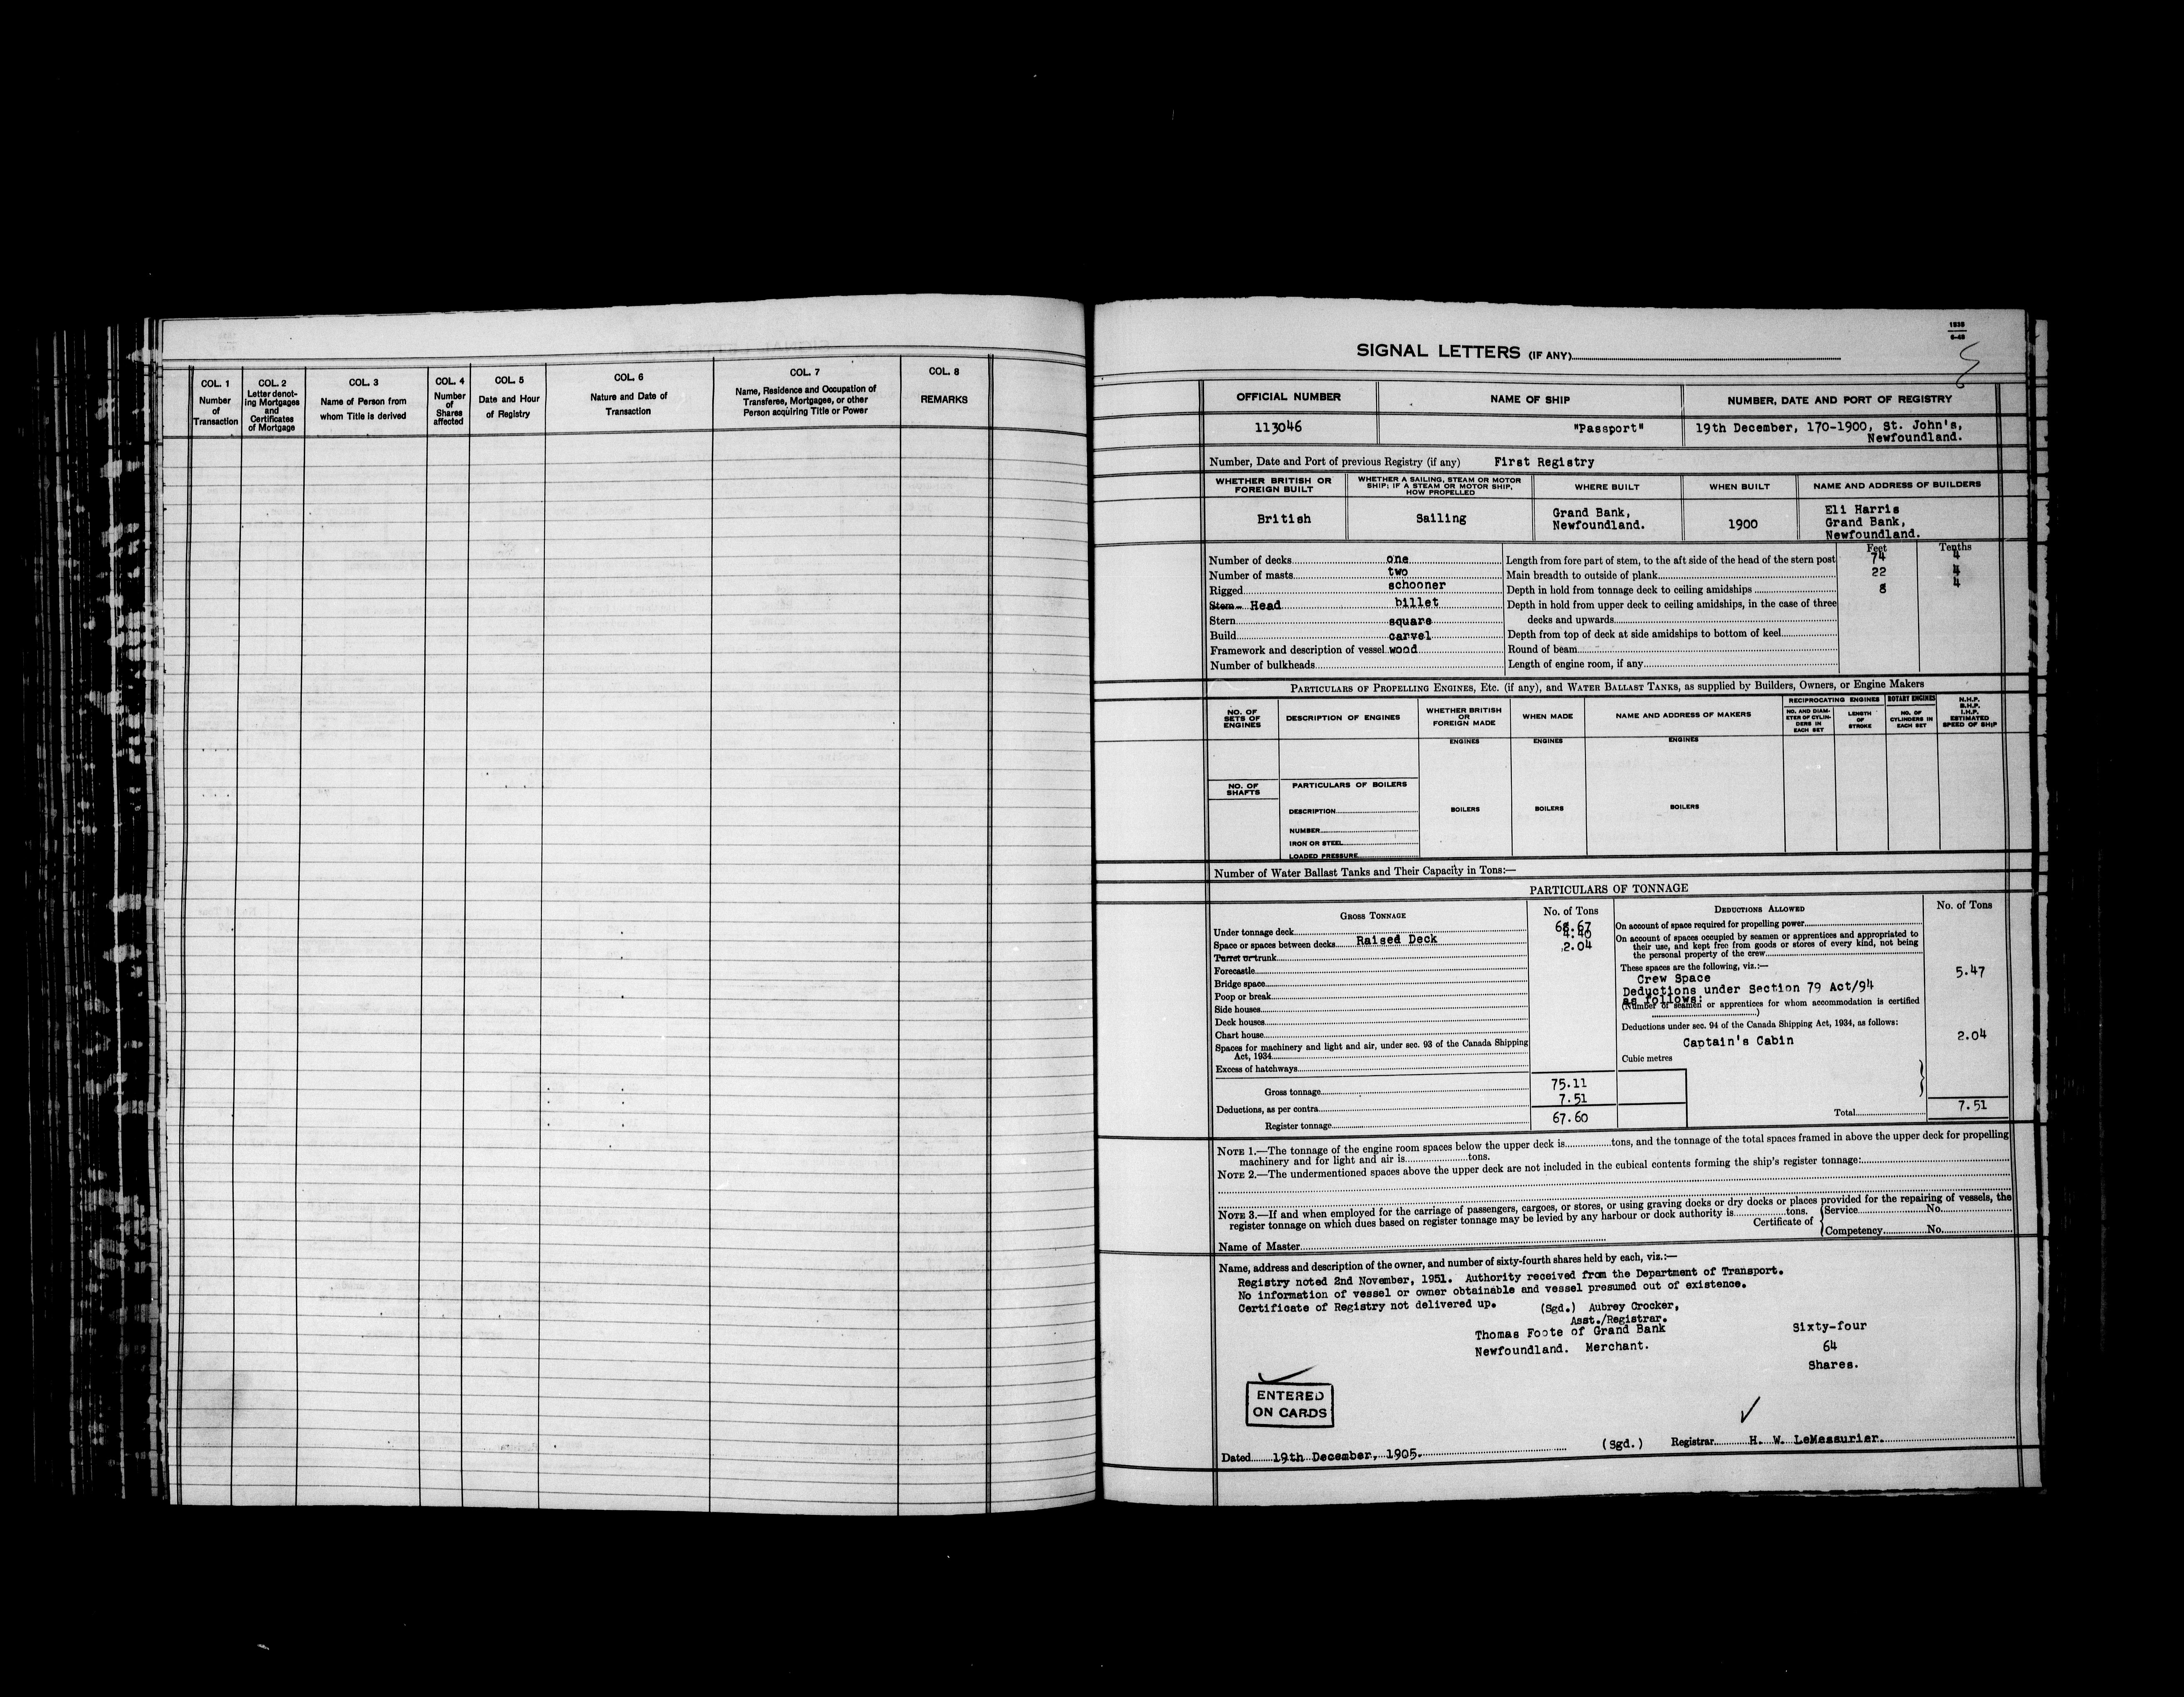 COL. 1
Number
of
Transaction
COL. 2
Letter denot-
ing Mortgages
and
Certificates
of Mortgage
COL. 3
Name of Person from
whom Title is derived
COL. 4
Number
of
Shares
affected
COL. 5
Date and Hour
of Registry
COL. 6
Nature and Date of
Transaction
COL. 7
Name, Residence and Occupation of
Transferee, Mortgagee, or other
Person acquiring Title or Power
COL. 8
REMARKS
SIGNAL LETTERS (IF ANY)
OFFICIAL NUMBER
NAME OF SHIP
NUMBER, DATE AND PORT OF REGISTRY
113046
"Passport"
19th December, 170-1900, St. John's,
Newfoundland.
Number, Date and Port of previous Registry (if any) First Registry
WHETHER BRITISH OR
FOREIGN BUILT
WHETHER A SAILING, STEAM OR MOTOR
SHIP; IF A STEAM OR MOTOR SHIP,
HOW PROPELLED
WHERE BUILT
WHEN BUILT
NAME AND ADDRESS OF BUILDERS
British
Sailing
Grand Bank,
Newfoundland.
1900
Eli Harris
Grand Bank,
Newfoundland.
Number of decks one
Number of masts two
Rigged schooner
Stem Head billet
Stern square
Build carvel
Framework and description of vessel wood
Number of bulkheads
Feet Tenths
Length from fore part of stem, to the aft side of the head of the stern post 74 4
Main breadth to outside of plank 22 4
Depth in hold from tonnage deck to ceiling amidships 8 4
Depth in hold from upper deck to ceiling amidships, in the case of three
decks and upwards
Depth from top of deck at side amidships to bottom of keel
Round of beam
Length of engine room, if any
PARTICULARS OF PROPELLING ENGINES, ETC. (if any), and WATER BALLAST TANKS, as supplied by Builders, Owners, or Engine Makers
NO. OF
SETS OF
ENGINES
DESCRIPTION OF ENGINES
WHETHER BRITISH
OR
FOREIGN MADE
WHEN MADE
NAME AND ADDRESS OF MAKERS
RECIPROCATING ENGINES
NO. AND DIAM-
ETER OF CYLIN-
DERS IN
EACH SET
LENGTH
OF
STROKE
ROTARY ENGINES
NO. OF
CYLINDERS IN
EACH SET
N.H.P.
B.H.P.
I.H.P.
ESTIMATED
SPEED OF SHIP
ENGINES
ENGINES
ENGINES
NO. OF
SHAFTS
PARTICULARS OF BOILERS
DESCRIPTION
NUMBER
IRON OR STEEL
LOADED PRESSURE
BOILERS
BOILERS
BOILERS
Number of Water Ballast Tanks and Their Capacity in Tons:—
PARTICULARS OF TONNAGE
GROSS TONNAGE
No. of Tons
Under tonnage deck 68.67
Space or spaces between decks Raised Deck 4.40
Turret or trunk 2.04
Forecastle
Bridge space
Poop or break
Side houses
Deck houses
Chart house
Spaces for machinery and light and air, under sec. 93 of the Canada Shipping
Act, 1934
Excess of hatchways
Gross tonnage 75.11
Deductions, as per contra 7.51
Register tonnage 67.60
DEDUCTIONS ALLOWED
No. of Tons
On account of space required for propelling power
On account of spaces occupied by seamen or apprentices and appropriated to
their use, and kept free from goods or stores of every kind, not being
the personal property of the crew
These spaces are the following, viz.:—
Crew Space 5.47
Deductions under Section 79 Act/94
as follows:
(Number of seamen or apprentices for whom accommodation is certified
)
Deductions under sec. 94 of the Canada Shipping Act, 1934, as follows:
Captain's Cabin 2.04
Cubic metres
Total 7.51
NOTE 1.—The tonnage of the engine room spaces below the upper deck is tons, and the tonnage of the total spaces framed in above the upper deck for propelling
machinery and for light and air is tons.
NOTE 2.—The undermentioned spaces above the upper deck are not included in the cubical contents forming the ship's register tonnage:
NOTE 3.—If and when employed for the carriage of passengers, cargoes, or stores, or using graving docks or dry docks or places provided for the repairing of vessels, the
register tonnage on which dues based on register tonnage may be levied by any harbour or dock authority is tons.
Certificate of
Service No.
Competency No.
Name of Master
Name, address and description of the owner, and number of sixty-fourth shares held by each, viz.:—
Registry noted 2nd November, 1951. Authority received from the Department of Transport.
No information of vessel or owner obtainable and vessel presumed out of existence.
Certificate of Registry not delivered up. (Sgd.) Aubrey Crocker,
Asst./Registrar.
Thomas Foote of Grand Bank
Newfoundland. Merchant.
Sixty-four
64
Shares.
ENTERED
ON CARDS
Dated 19th December, 1905. (Sgd.) Registrar H. W. LeMessurier.